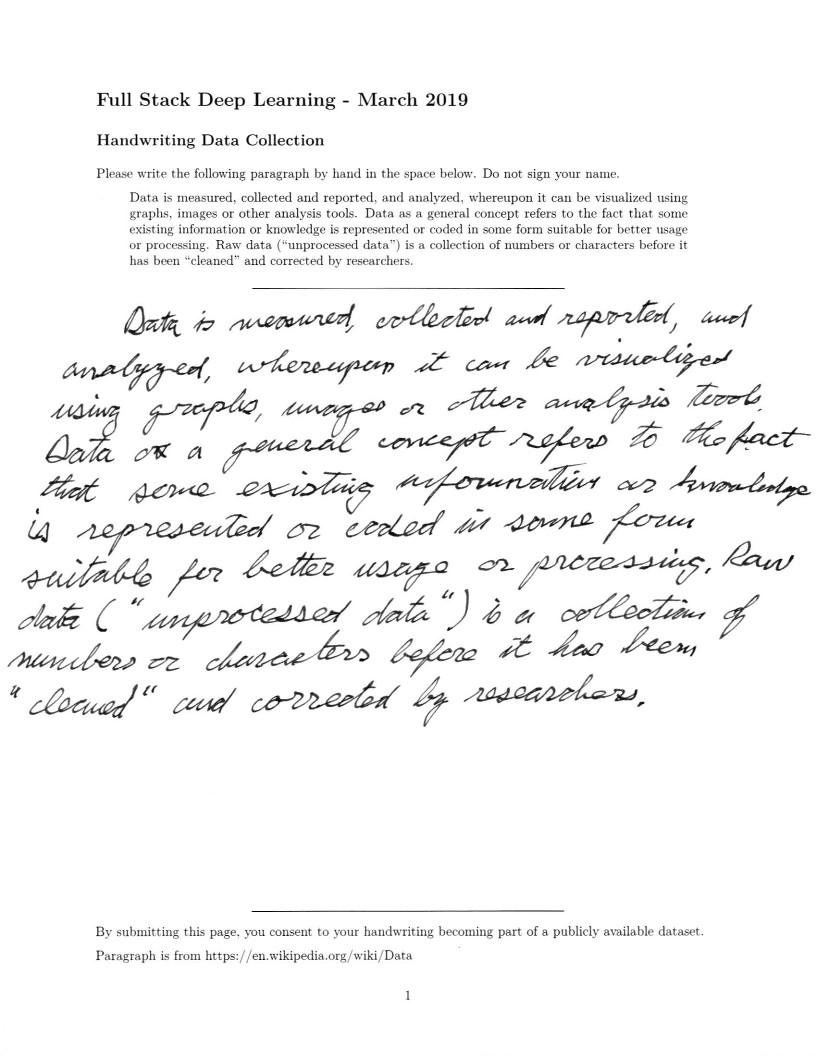 Full Stack Deep Learning - March 2019
Handwriting Data Collection
Please write the following paragraph by hand in the space below. Do not sign your name.
Data is measured, collected and reported, and analyzed, whereupon it can be visualized using
graphs, images or other analysis tools. Data as a general concept refers to the fact that some
existing information or knowledge is represented or coded in some form suitable for better usage
or processing. Raw data (“unprocessed data”) is a collection of numbers or characters before it
has been “cleaned” and corrected by researchers.
Data is measured, collected and reported, and
analyzed, whereupon it can be visualized
using graphs, images or other analysis tools.
Data as a general concept refers to the fact
that some existing information or knowledge
is represented or coded in some form
suitable for better usage or processing. Raw
data ("unprocessed data") is a collection of
numbers or characters before it has been
"cleaned" and corrected by researchers.
By submitting this page, you consent to your handwriting becoming part of a publicly available dataset.
Paragraph is from https://en.wikipedia.org/wiki/Data
1